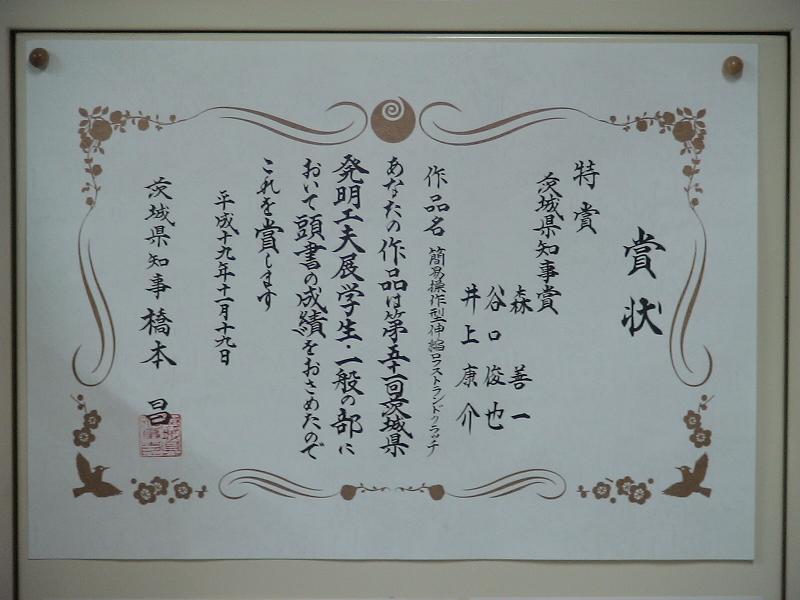 賞状
特賞
茨城県知事賞
森善一
谷口俊也
井上康介
作品名 簡易操作型伸縮ロフストランドクラッチ
あなたの作品は第五十一回茨城県
発明工夫展学生・一般の部に
おいて頭書の成績をおさめたので
これを賞します
平成十九年十一月十九日
茨城県知事 橋本昌